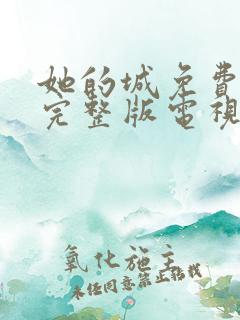 她的城免費
完整版電視
氧化施主
未经同意禁止转载